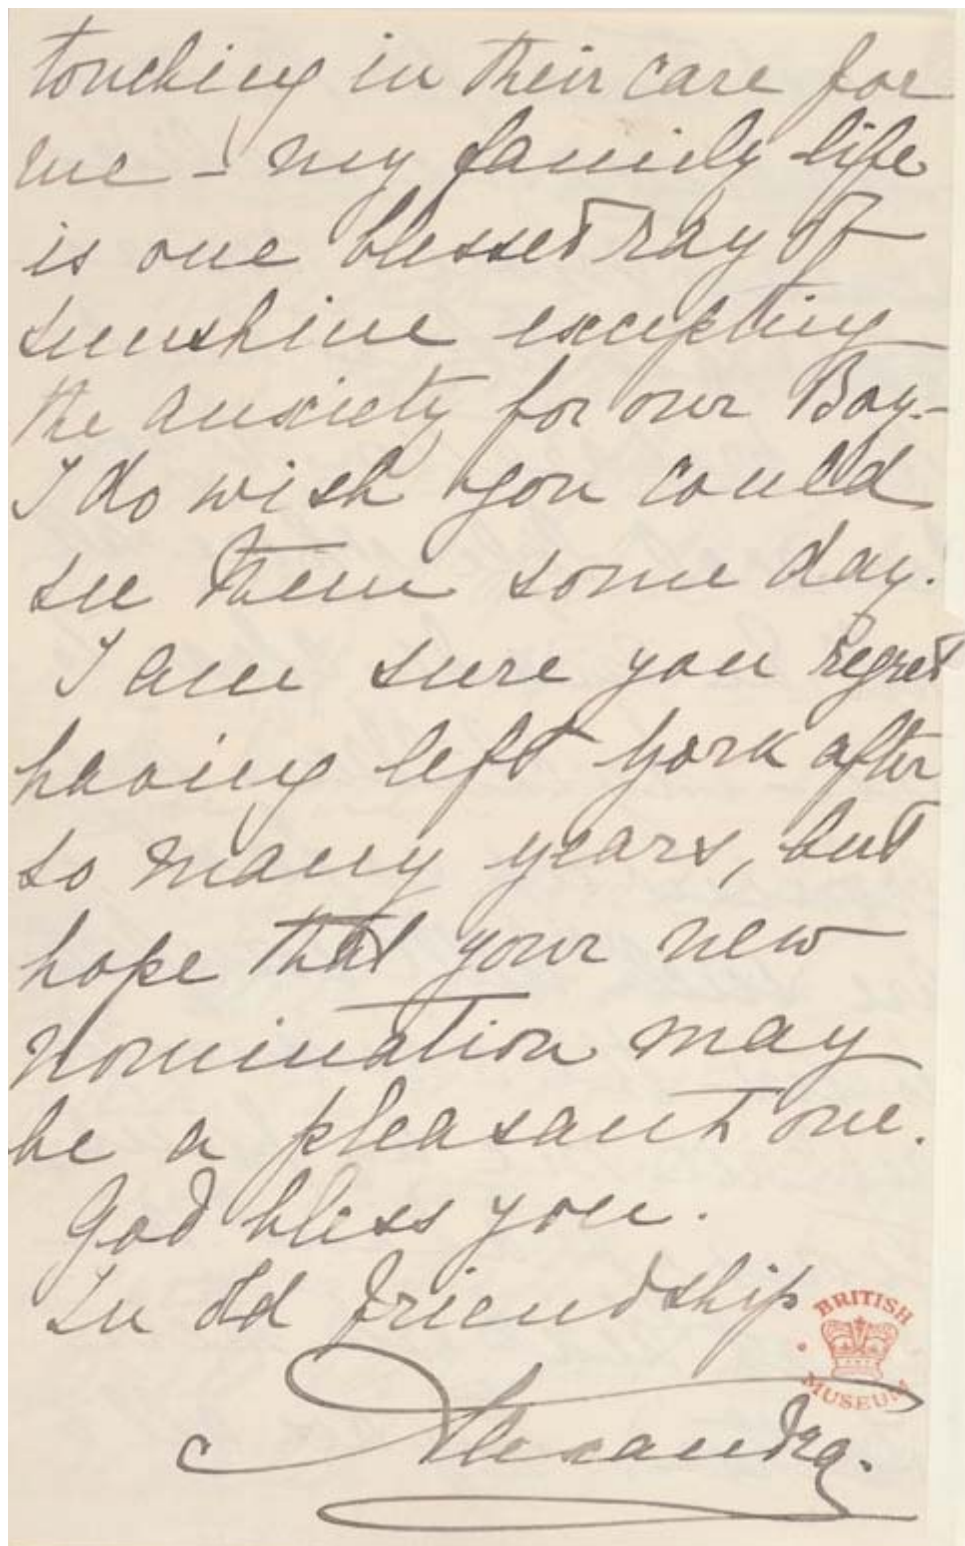 touching in their care for
me – my family life
is one blessed ray of
sunshine excepting
the anxiety for our Boy.–
I do wish you could
see them some day.
I am sure you regret
having left York after
so many years, but
hope that your new
nomination may
be a pleasant one.
God bless you.
In old friendship
BRITISH
MUSEUM
Alexandra.